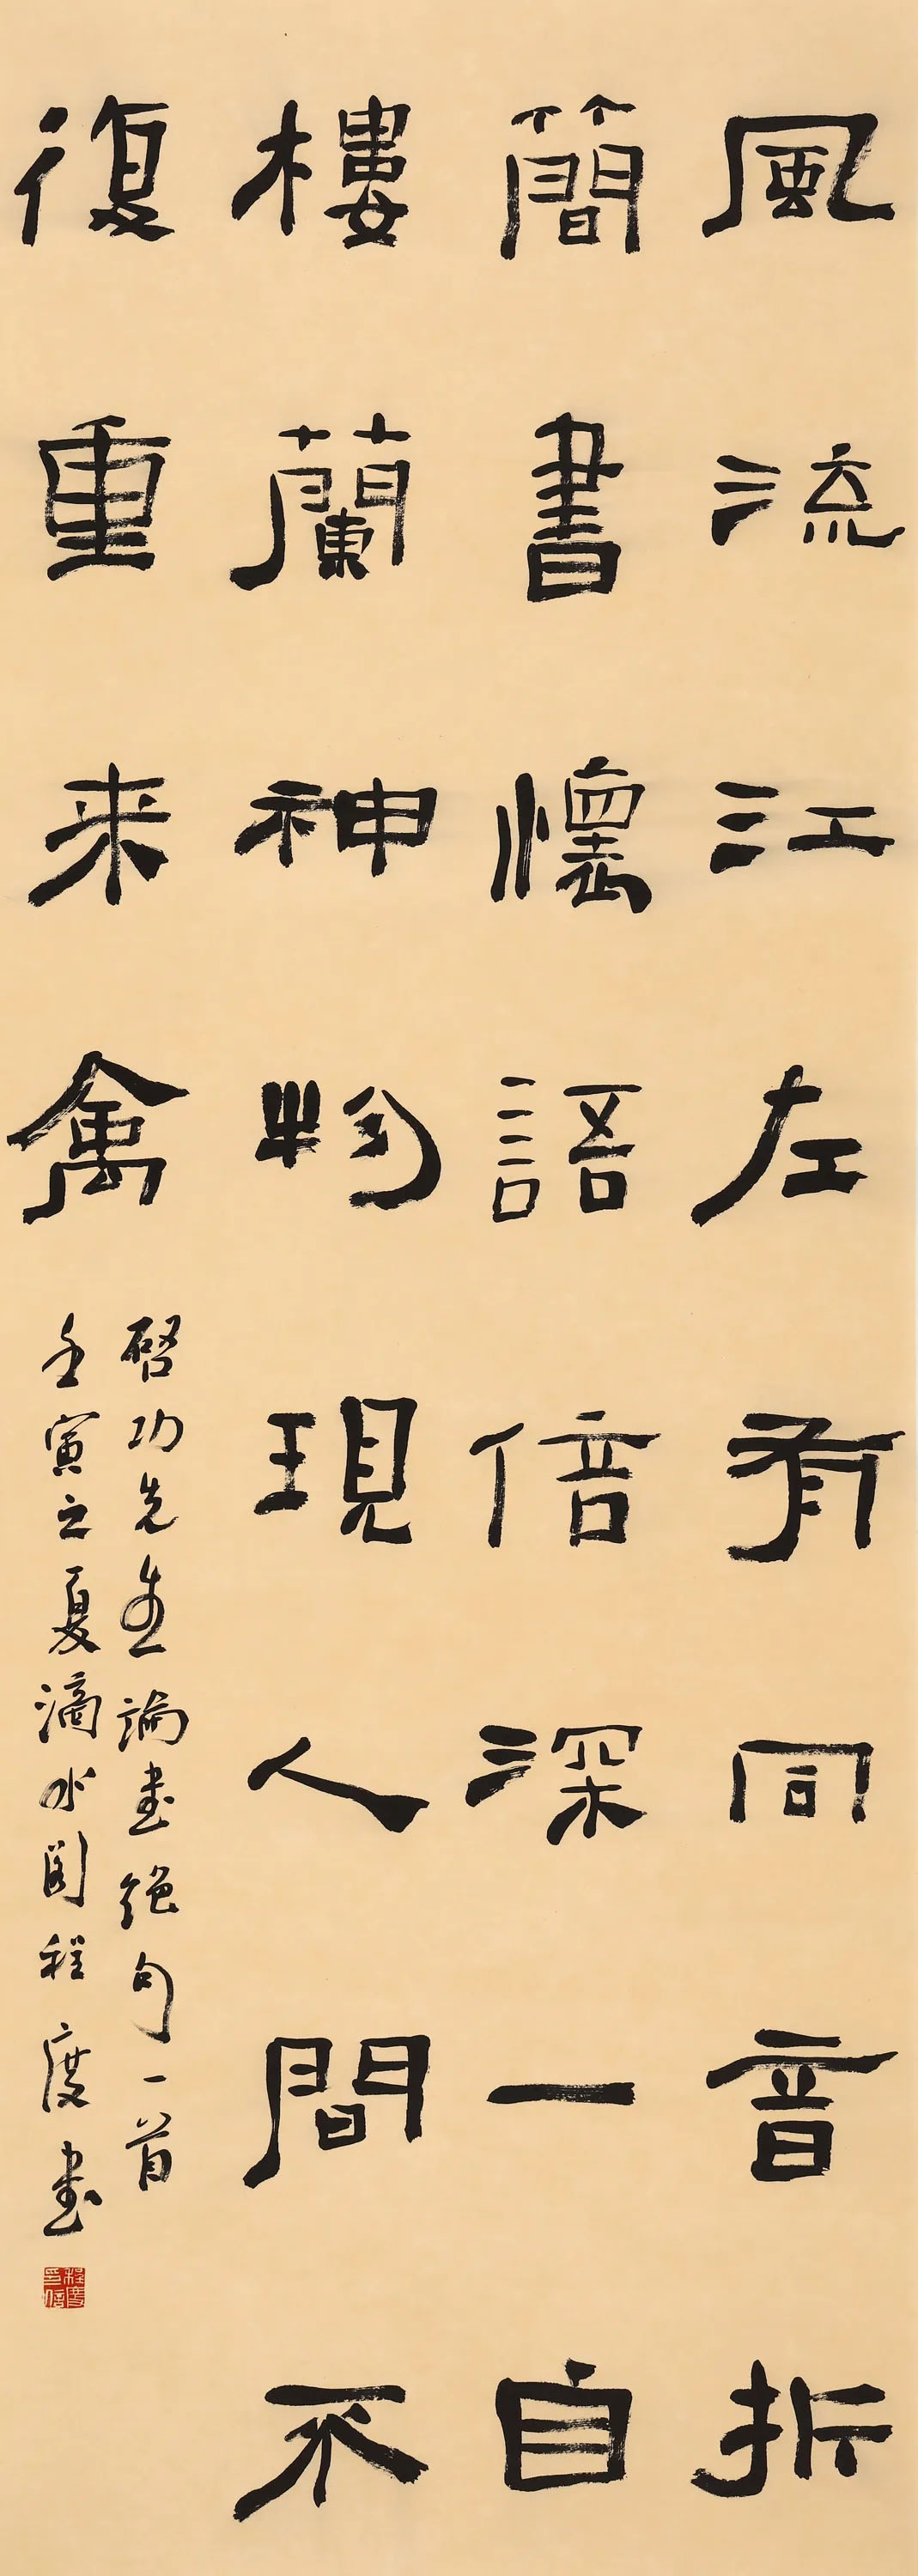 風流江左有同音折
簡書懷語倍深一自
樓蘭神物現人間不
復重来禽
啓功先生論書絕句一首
壬寅之夏滴水閣程度書
程度印信